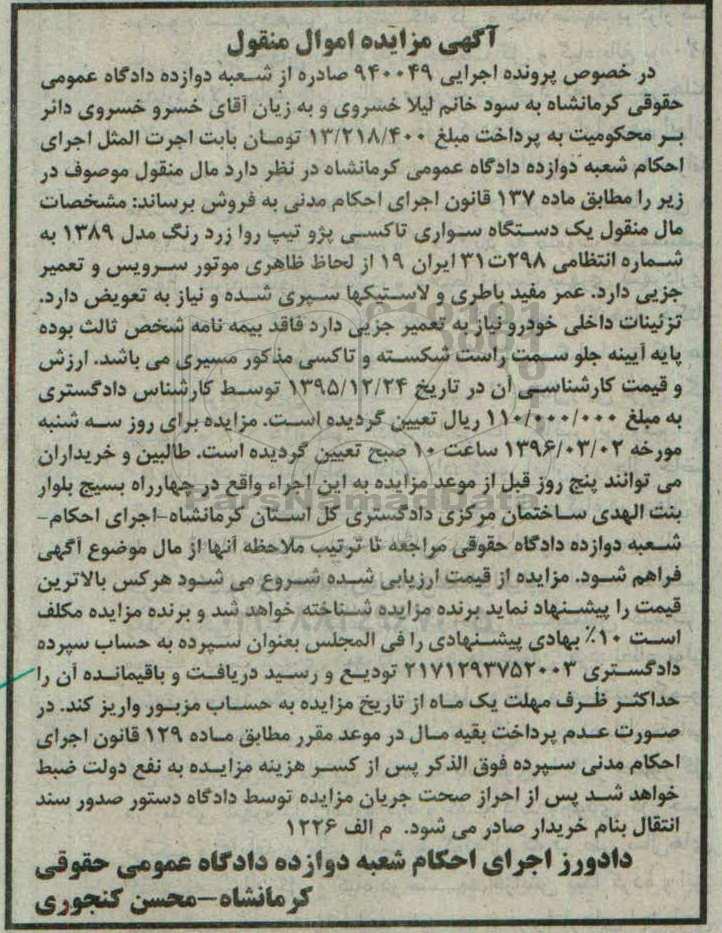 آگهی مزایده اموال منقول
در خصوص پرونده اجرایی ۹۴۰۰۴۹ صادره از شعبه دوازده دادگاه عمومی
حقوقی کرمانشاه به سود خانم لیلا خسروی و به زیان آقای خسرو خسروی دائر
بر محکومیت به پرداخت مبلغ ۱۳/۲۱۸/۴۰۰ تومان بابت اجرت المثل اجرای
احکام شعبه دوازده دادگاه عمومی کرمانشاه در نظر دارد مال منقول موصوف در
زیر را مطابق ماده ۱۳۷ قانون اجرای احکام مدنی به فروش برساند: مشخصات
مال منقول یک دستگاه سواری تاکسی پژو تیپ روا زرد رنگ مدل ۱۳۸۹ به
شماره انتظامی ۲۹۸ت۳۱ ایران ۱۹ از لحاظ ظاهری موتور سرویس و تعمیر
جزیی دارد. عمر مفید باطری و لاستیکها سپری شده و نیاز به تعویض دارد.
تزئینات داخلی خودرو نیاز به تعمیر جزیی دارد فاقد بیمه نامه شخص ثالث بوده
پایه آیینه جلو سمت راست شکسته و تاکسی مذکور مسیری می باشد. ارزش
و قیمت کارشناسی آن در تاریخ ۱۳۹۵/۱۲/۲۴ توسط کارشناس دادگستری
به مبلغ ۱۱۰/۰۰۰/۰۰۰ ریال تعیین گردیده است. مزایده برای روز سه شنبه
مورخه ۱۳۹۶/۰۳/۰۲ ساعت ۱۰ صبح تعیین گردیده است. طالبین و خریداران
می توانند پنج روز قبل از موعد مزایده به این اجراء واقع در چهارراه بسیج بلوار
بنت الهدی ساختمان مرکزی دادگستری کل استان کرمانشاه-اجرای احکام-
شعبه دوازده دادگاه حقوقی مراجعه تا ترتیب ملاحظه آنها از مال موضوع آگهی
فراهم شود. مزایده از قیمت ارزیابی شده شروع می شود هرکس بالاترین
قیمت را پیشنهاد نماید برنده مزایده شناخته خواهد شد و برنده مزایده مکلف
است ۱۰٪ بهادی پیشنهادی را فی المجلس بعنوان سپرده به حساب سپرده
دادگستری ۲۱۷۱۲۹۳۷۵۲۰۰۳ تودیع و رسید دریافت و باقیمانده آن را
حداکثر ظرف مهلت یک ماه از تاریخ مزایده به حساب مزبور واریز کند. در
صورت عدم پرداخت بقیه مال در موعد مقرر مطابق ماده ۱۲۹ قانون اجرای
احکام مدنی سپرده فوق الذکر پس از کسر هزینه مزایده به نفع دولت ضبط
خواهد شد پس از احراز صحت جریان مزایده توسط دادگاه دستور صدور سند
انتقال بنام خریدار صادر می شود. م الف ۱۲۲۶
دادورز اجرای احکام شعبه دوازده دادگاه عمومی حقوقی
کرمانشاه-محسن کنجوری
ParsNamadData